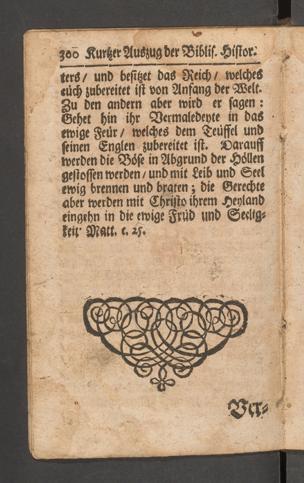 300 Kurtzer Auszug der Biblis. Histor.
ters / und besitzet das Reich / welches
euch zubereitet ist von Anfang der Welt.
Zu den andern aber wird er sagen :
Gehet hin ihr Vermaledeyte in das
ewige Feur / welches dem Teuffel und
seinen Englen zubereitet ist. Darauff
werden die Böse in Abgrund der Höllen
gestossen werden / und mit Leib und Seel
ewig brennen und braten ; die Gerechte
aber werden mit Christo ihrem Heyland
eingehn in die ewige Früd und Seelig-
keit. Matt. c. 25.
Ver-